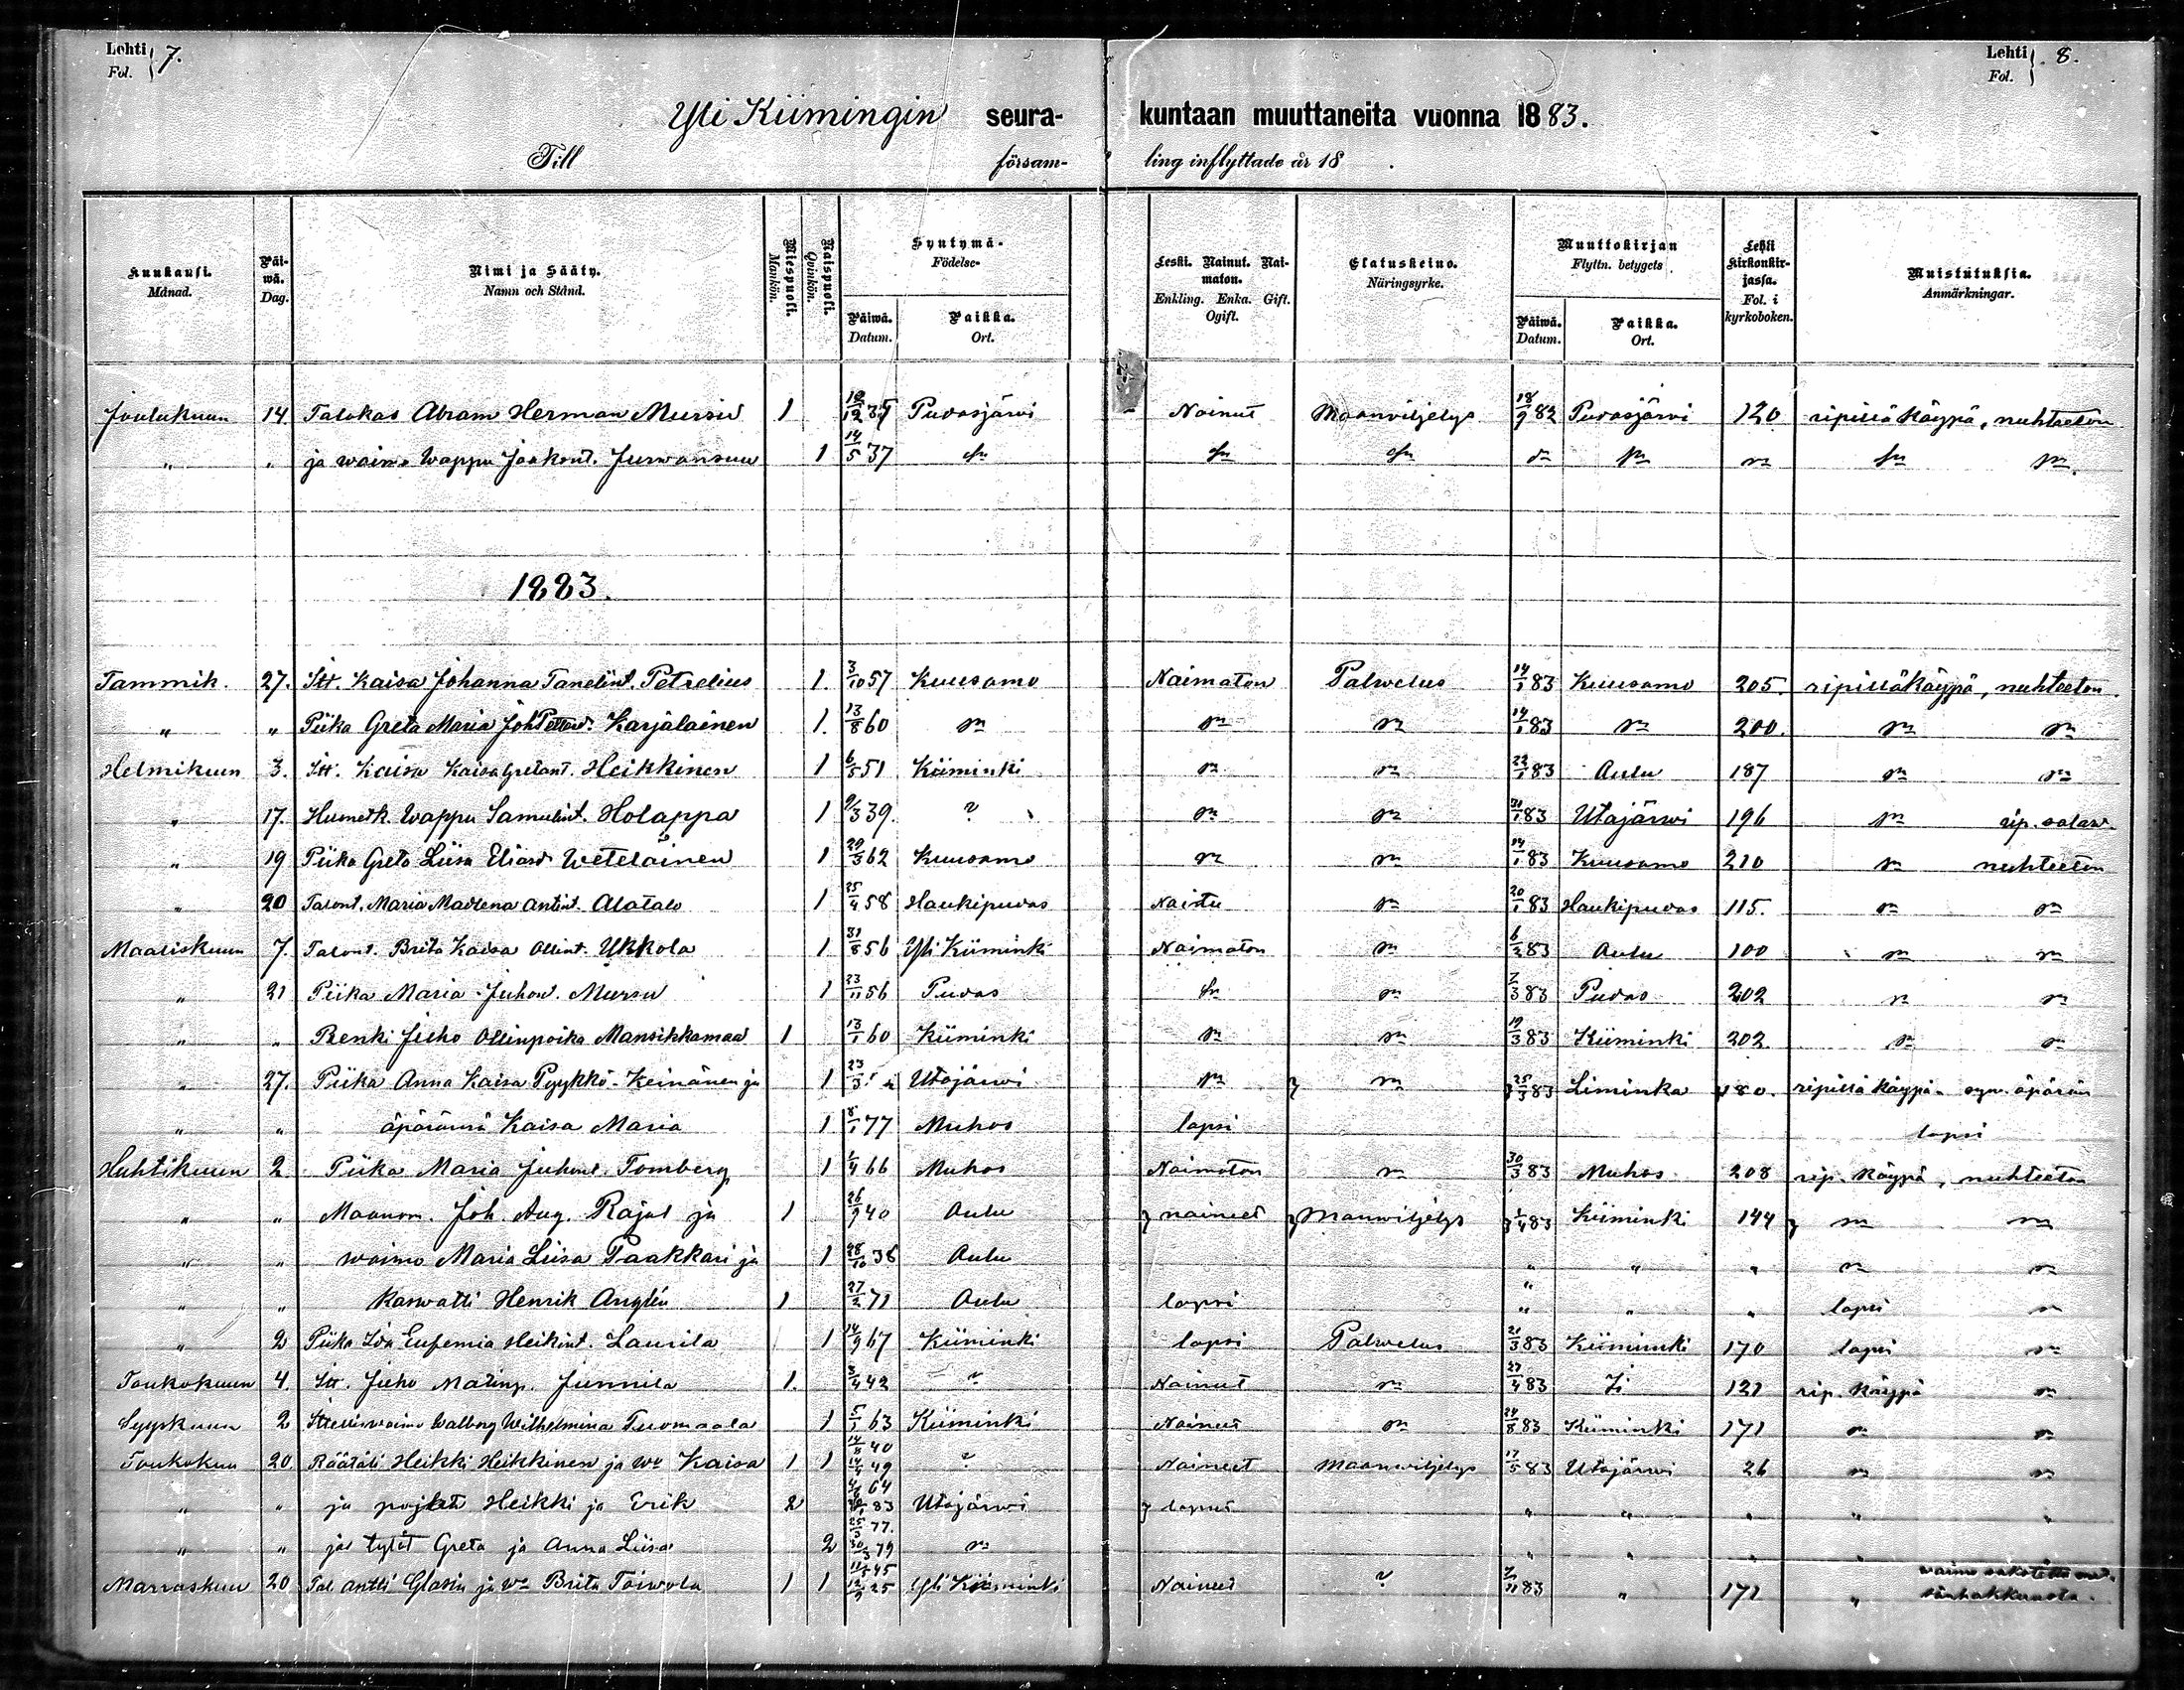 Lehti Fol. 7.
Lehti Fol. 8.
Yli Kiimingin seurakuntaan muuttaneita vuonna 1883.
Till församling inflyttade år 18 .
Kuukausi. Månad.
Päiwä. Dag.
Nimi ja Sääty. Namn och Stånd.
Miespuoli. Mankön.
Naispuoli. Qvinkön.
Syntymä- Födelse-
Päiwä. Datum.
Paikka. Ort.
Leski. Nainut. Naimaton. Enkling. Enka. Gift. Ogift.
Elatuskeino. Näringsyrke.
Muuttokirjan Flyttn. betygets
Päiwä. Datum.
Paikka. Ort.
Lehti kirkonkirjassa. Fol. i kyrkoboken.
Muistutuksia. Anmärkningar.
Joulukuun 14 Talokas Abram Herman Mursu 1 Pudasjärvi Nainut Maanviljelys 18/9 82 Pudasjärvi 120 ripillä käypä, nuhteeton
" " ja waimo Wappu Jaakont. Jurwansuu 1 14/5 37 sn sn sn sn sn sn sn sn
1883.
Tammik. 27. Itt. Kaisa Johanna Tanelint. Petrelius 1. 3/10 57 Kuusamo Naimaton Palwelus 14/1 83 Kuusamo 205. ripillä käypä, nuhteeton.
" " Piika Greta Maria Joh Karjalainen 1. 13/8 60 sn sn sn 14/1 83 sn 200. sn sn
Helmikuun 3. Itt. Kaisa Kaisa Gretant. Heikkinen 1 6/5 51 Kiiminki sn sn 22/1 83 Oulu 187 sn sn
" 17. Wappu Samulint. Holappa 1 9/3 39. ? sn sn 31/1 83 Utajärwi 196 sn rip. salaw.
" 19 Piika Greta Liisa Eliasd. Weteläinen 1 29/3 62 Kuusamo sn sn 14/1 83 Kuusamo 210 sn nuhteeton
" 20 Talont. Maria Madlena Antint. Alatalo 1 25/4 58 Haukipudas Naitu sn 20/1 83 Haukipudas 115. sn sn
Maaliskuun 7. Talont. Brita Kaisa Ollint. Ukkola 1 31/8 56 Yli Kiiminki Naimaton sn 6/2 83 Oulu 100 sn sn
" 21 Piika Maria Juhont. Mursu 1 23/11 56 Pudas sn sn 7/3 83 Pudas 202 sn sn
" " Renki Juho Ollinpoika Mansikkamaa 1 13/1 60 Kiiminki sn sn 19/3 83 Kiiminki 202. sn sn
" 27. Piika Anna Kaisa Pyykkö-Keinänen ja 1 Utajärwi sn sn 25/3 83 Liminka 180. ripillä käypä syn. äpärän
" " äpäränsä Kaisa Maria 1 8/1 77 Muhos lapsi lapsi
Huhtikuun 2 Piika Maria Juhont. Tomberg 1 1/4 66 Muhos Naimaton sn 30/3 83 Muhos 208 rip. käypä, nuhteeton
" " Maanom. Joh. Aug. Rajal ja 1 26/9 40 Oulu naineet Maanwiljelys 1/4 83 Kiiminki 144 sn sn
" " waimo Maria Liisa Paakkari ja 1 28/10 38 Oulu " " " sn sn
" " kaswatti Henrik Anglén 1 27/2 71 Oulu lapsi " " " lapsi sn
" 2 Piika Ida Eufemia Heikint. Laurila 1 14/9 67 Kiiminki lapsi Palwelus 21/3 83 Kiiminki 170 lapsi sn
Toukokuun 4. Itt. Juho Matinp. Junnila 1. 3/4 42 ? Nainut sn 27/4 83 Ii 121 rip. käypä sn
Syyskuun 2 Itselliswaimo Walborg Wilhelmina Tuomaala 1 5/1 63 Kiiminki Nainut sn 24/8 83 Kiiminki 171 sn sn
Toukokuu 20. Räätäli Heikki Heikkinen ja wo Kaisa 1 1 14/8 40 14/4 49 ? Naineet Maanwiljelys 17/5 83 Utajärwi 26 sn sn
" " ja pojat Heikki ja Erik 2 Utajärwi lapset " " " " "
" " ja tytöt Greta ja Anna Liisa 2 25/3 77. 30/3 79 sn " " " "
Marraskuun 20 Tal. Antti Glasin ja wo Brita Toiwola 1 1 11/5 45 12/9 25 Yli Kiiminki Naineet ? 7/11 83 " 171 " waimo sakotettu